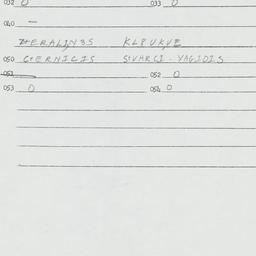 032 0 033 0
040 —
ZERALINSS KLPUKVE
050 CERNICIS SVARCI-VAGIDIS
051 052 0
053 0 054 0